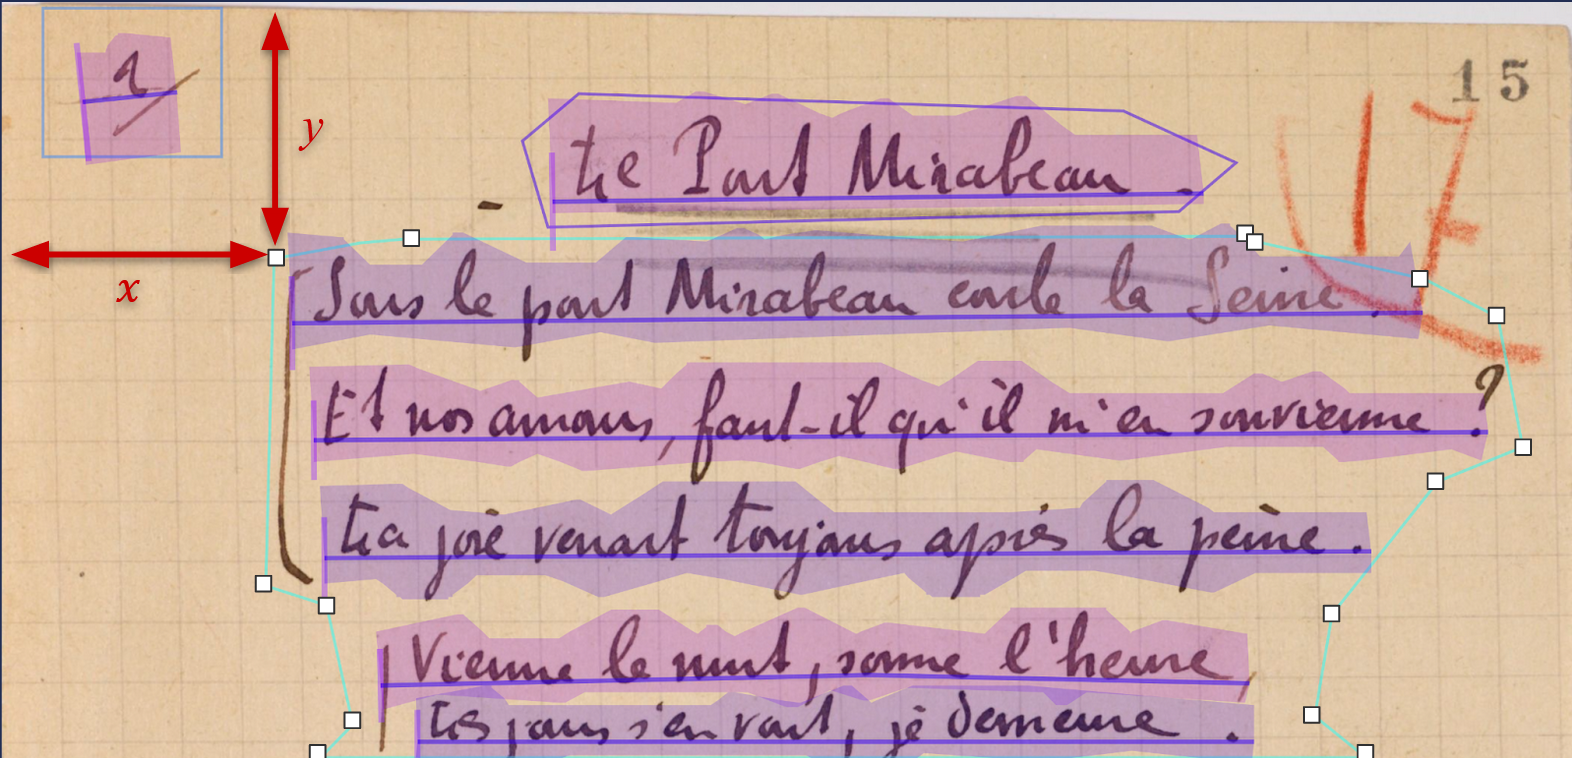 15
17
y
Le Pont Mirabeau .
x
Sous le pont Mirabeau coule la Seine .
Et nos amours, faut-il qu'il m'en souvienne ?
La joie venait toujours après la peine .
Vienne la nuit, sonne l'heure,
Les jours s'en vont, je demeure .